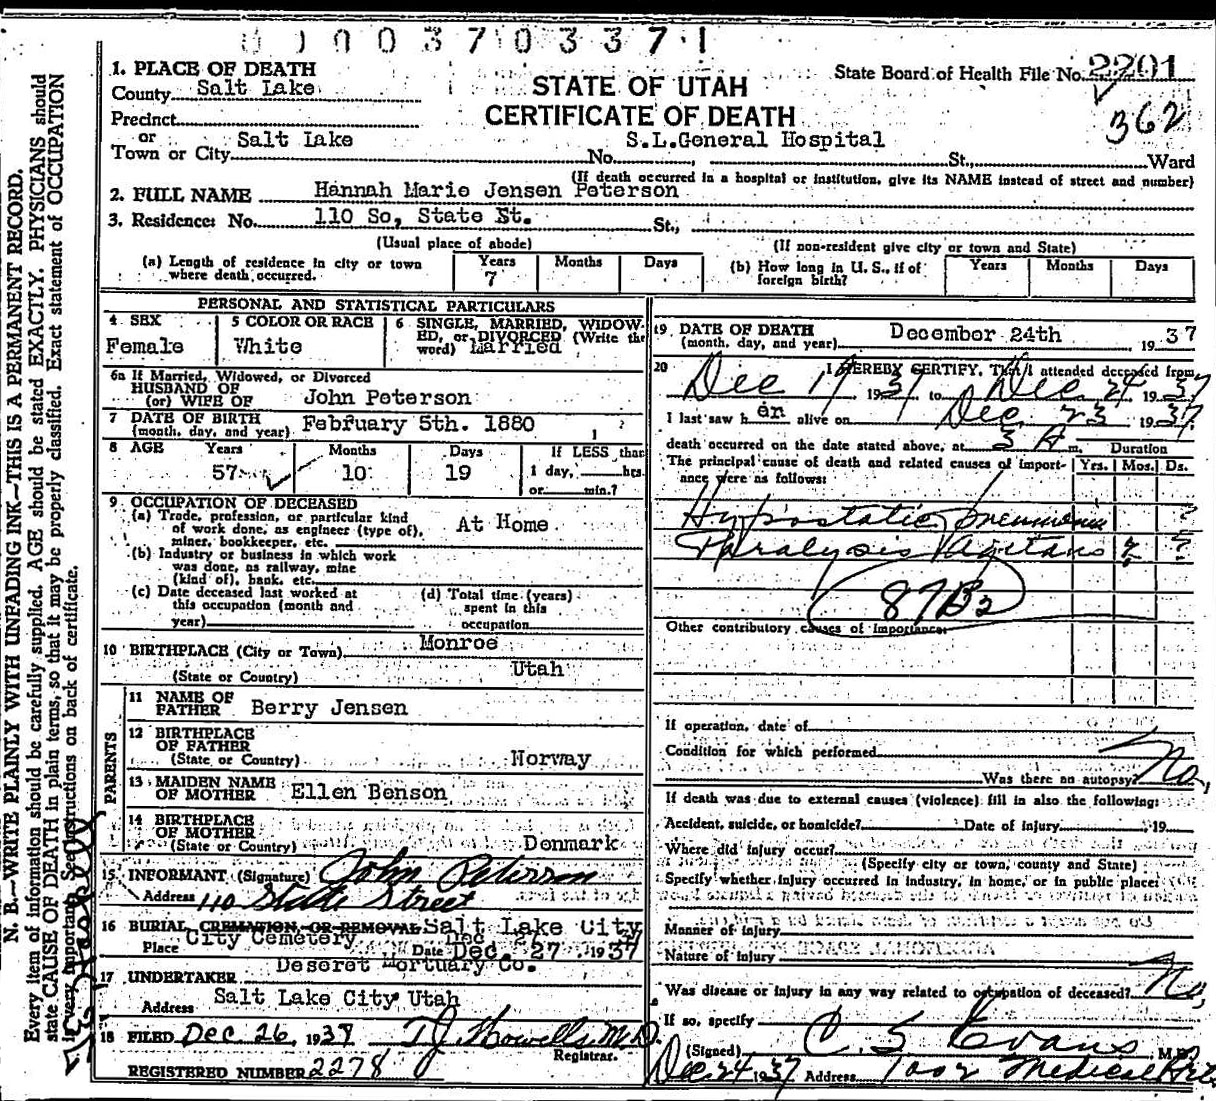 0000370337 1
1. PLACE OF DEATH
County Salt Lake
STATE OF UTAH
CERTIFICATE OF DEATH
State Board of Health File No. 2201
362
Precinct
or
Town or City Salt Lake No. S.L.General Hospital St., Ward
(If death occurred in a hospital or institution, give its NAME instead of street and number)
2. FULL NAME Hannah Marie Jensen Peterson
3. Residence: No. 110 So, State St. St.,
(Usual place of abode) (If non-resident give city or town and State)
(a) Length of residence in city or town where death occurred. Years 7 Months Days
(b) How long in U. S., if of foreign birth? Years Months Days
PERSONAL AND STATISTICAL PARTICULARS
4 SEX Female
5 COLOR OR RACE White
6 SINGLE, MARRIED, WIDOWED, or DIVORCED (Write the word) Married
6a If Married, Widowed, or Divorced
HUSBAND OF
(or) WIFE OF John Peterson
7 DATE OF BIRTH
(month, day, and year) February 5th. 1880
8 AGE Years 57 Months 10 Days 19 If LESS than 1 day, hrs. or min.?
9 OCCUPATION OF DECEASED
(a) Trade, profession, or particular kind
of work done, as engineer (type of),
miner, bookkeeper, etc. At Home
(b) Industry or business in which work
was done, as railway, mine
(kind of), bank, etc.
(c) Date deceased last worked at
this occupation (month and
year)
(d) Total time (years)
spent in this
occupation
10 BIRTHPLACE (City or Town) Monroe
(State or Country) Utah
PARENTS
11 NAME OF
FATHER Berry Jensen
12 BIRTHPLACE
OF FATHER
(State or Country) Norway
13 MAIDEN NAME
OF MOTHER Ellen Benson
14 BIRTHPLACE
OF MOTHER
(State or Country) Denmark
15 INFORMANT (Signature) John Peterson
Address 110 State Street
16 BURIAL, CREMATION, OR REMOVAL Salt Lake City
Place City Cemetery Date Dec. 27 1937
17 UNDERTAKER Deseret Mortuary Co.
Address Salt Lake City Utah
18 FILED Dec 26, 1937 T J. Howells, M.D.
Registrar.
REGISTERED NUMBER 2278
19 DATE OF DEATH
(month, day, and year) December 24th 1937
20 I HEREBY CERTIFY, That I attended deceased from
Dec 17 1937 to Dec 24 1937
I last saw h er alive on Dec 23 1937
death occurred on the date stated above, at 3 A m. Duration
The principal cause of death and related causes of importance were as follows: Yrs. Mos. Ds.
Hypostatic Pneumonia ?
Paralysis Agitans ? ?
87B2
Other contributory causes of importance:
If operation, date of
Condition for which performed
Was there an autopsy? No,
If death was due to external causes (violence) fill in also the following:
Accident, suicide, or homicide? Date of injury , 19
Where did injury occur?
(Specify city or town, county and State)
Specify whether injury occurred in industry, in home, or in public place:
Manner of injury
Nature of injury
Was disease or injury in any way related to occupation of deceased? No,
If so, specify
(Signed) C. S Evans M.D.
Dec. 24 1937 Address 1002 Medical Arts
N. B.—WRITE PLAINLY WITH UNFADING INK—THIS IS A PERMANENT RECORD.
Every item of information should be carefully supplied. AGE should be stated EXACTLY. PHYSICIANS should
state CAUSE OF DEATH in plain terms, so that it may be properly classified. Exact statement of OCCUPATION
is very important. See instructions on back of certificate.